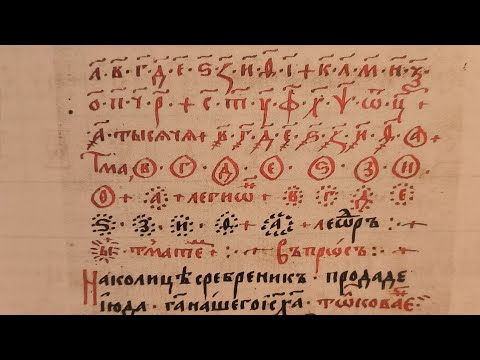 а҃ · в҃ · г҃ · д҃ · е҃ · ѕ҃ · з҃ · и҃ · ѳ҃ · і҃ + к҃ · л҃ · м҃ · н҃ · ѯ҃ ·
о҃ · п҃ · ч҃ · р҃ + с҃ · т҃ · у҃ · ф҃ · х҃ · ѱ҃ · ѿ҃ · ц҃ +
҂а҃ · тысяча + в҃ · г҃ · д҃ · е҃ · ѕ҃ · з҃ · и҃ · ѳ҃ · а⃝ +
Тма, в⃝ · г⃝ · д⃝ · е⃝ · ѕ⃝ · з⃝ · и⃝ ·
ѳ⃝ + а҈ · легиѡⷩ + в҈ · г҈ · д҈ · е҈
ѕ҈ · з҈ · и҈ · ѳ҈ + а҉ + леѡⷣръ : · +
въпрѡсъ : · +
На колицѣ сребреникъ продаде
іюда · га нашего іс ха · тѡлкованїе